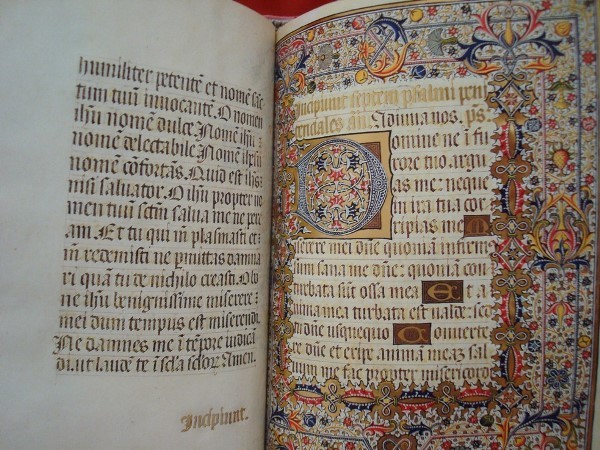 humiliter petentē et nomē sāc
tum tuū invocantē. O nomen
ihū nomē dulce. Nomē ihū
nomē delectabile. Nomē ihesu
nomē cōfortās. Quid est ihūs
nisi saluator. O ihū propter no
men tuū sctm̄ salua me ne pere
am. Et tu qui m̄ plasmasti et
m̄ redemisti ne p̄mittas damna
ri quā tu de nichilo creasti. O bo
ne ihū benignissime miserere
mei dum tempus est miserendi.
Ne damnes me ī tēpore iudica
di. ut laudē te ī sc̄la sc̄lor. Amen.
Incipiunt.
Incipiunt septem psalmi peni
tenciales añ. Ne reminiscaris. ps.
Domine ne ī fu
rore tuo argu
as me: neque
in ira tua cor
ripias me. M
iserere mei dn̄e quoniā infirm9
sum sana me dn̄e: quoniā con
turbata sūt ossa mea. Et a
nima mea turbata est valde: sed
tu dn̄e usquequo. Conuerte
re dn̄e et eripe animā meaz sal
uum me fac propter misericordi